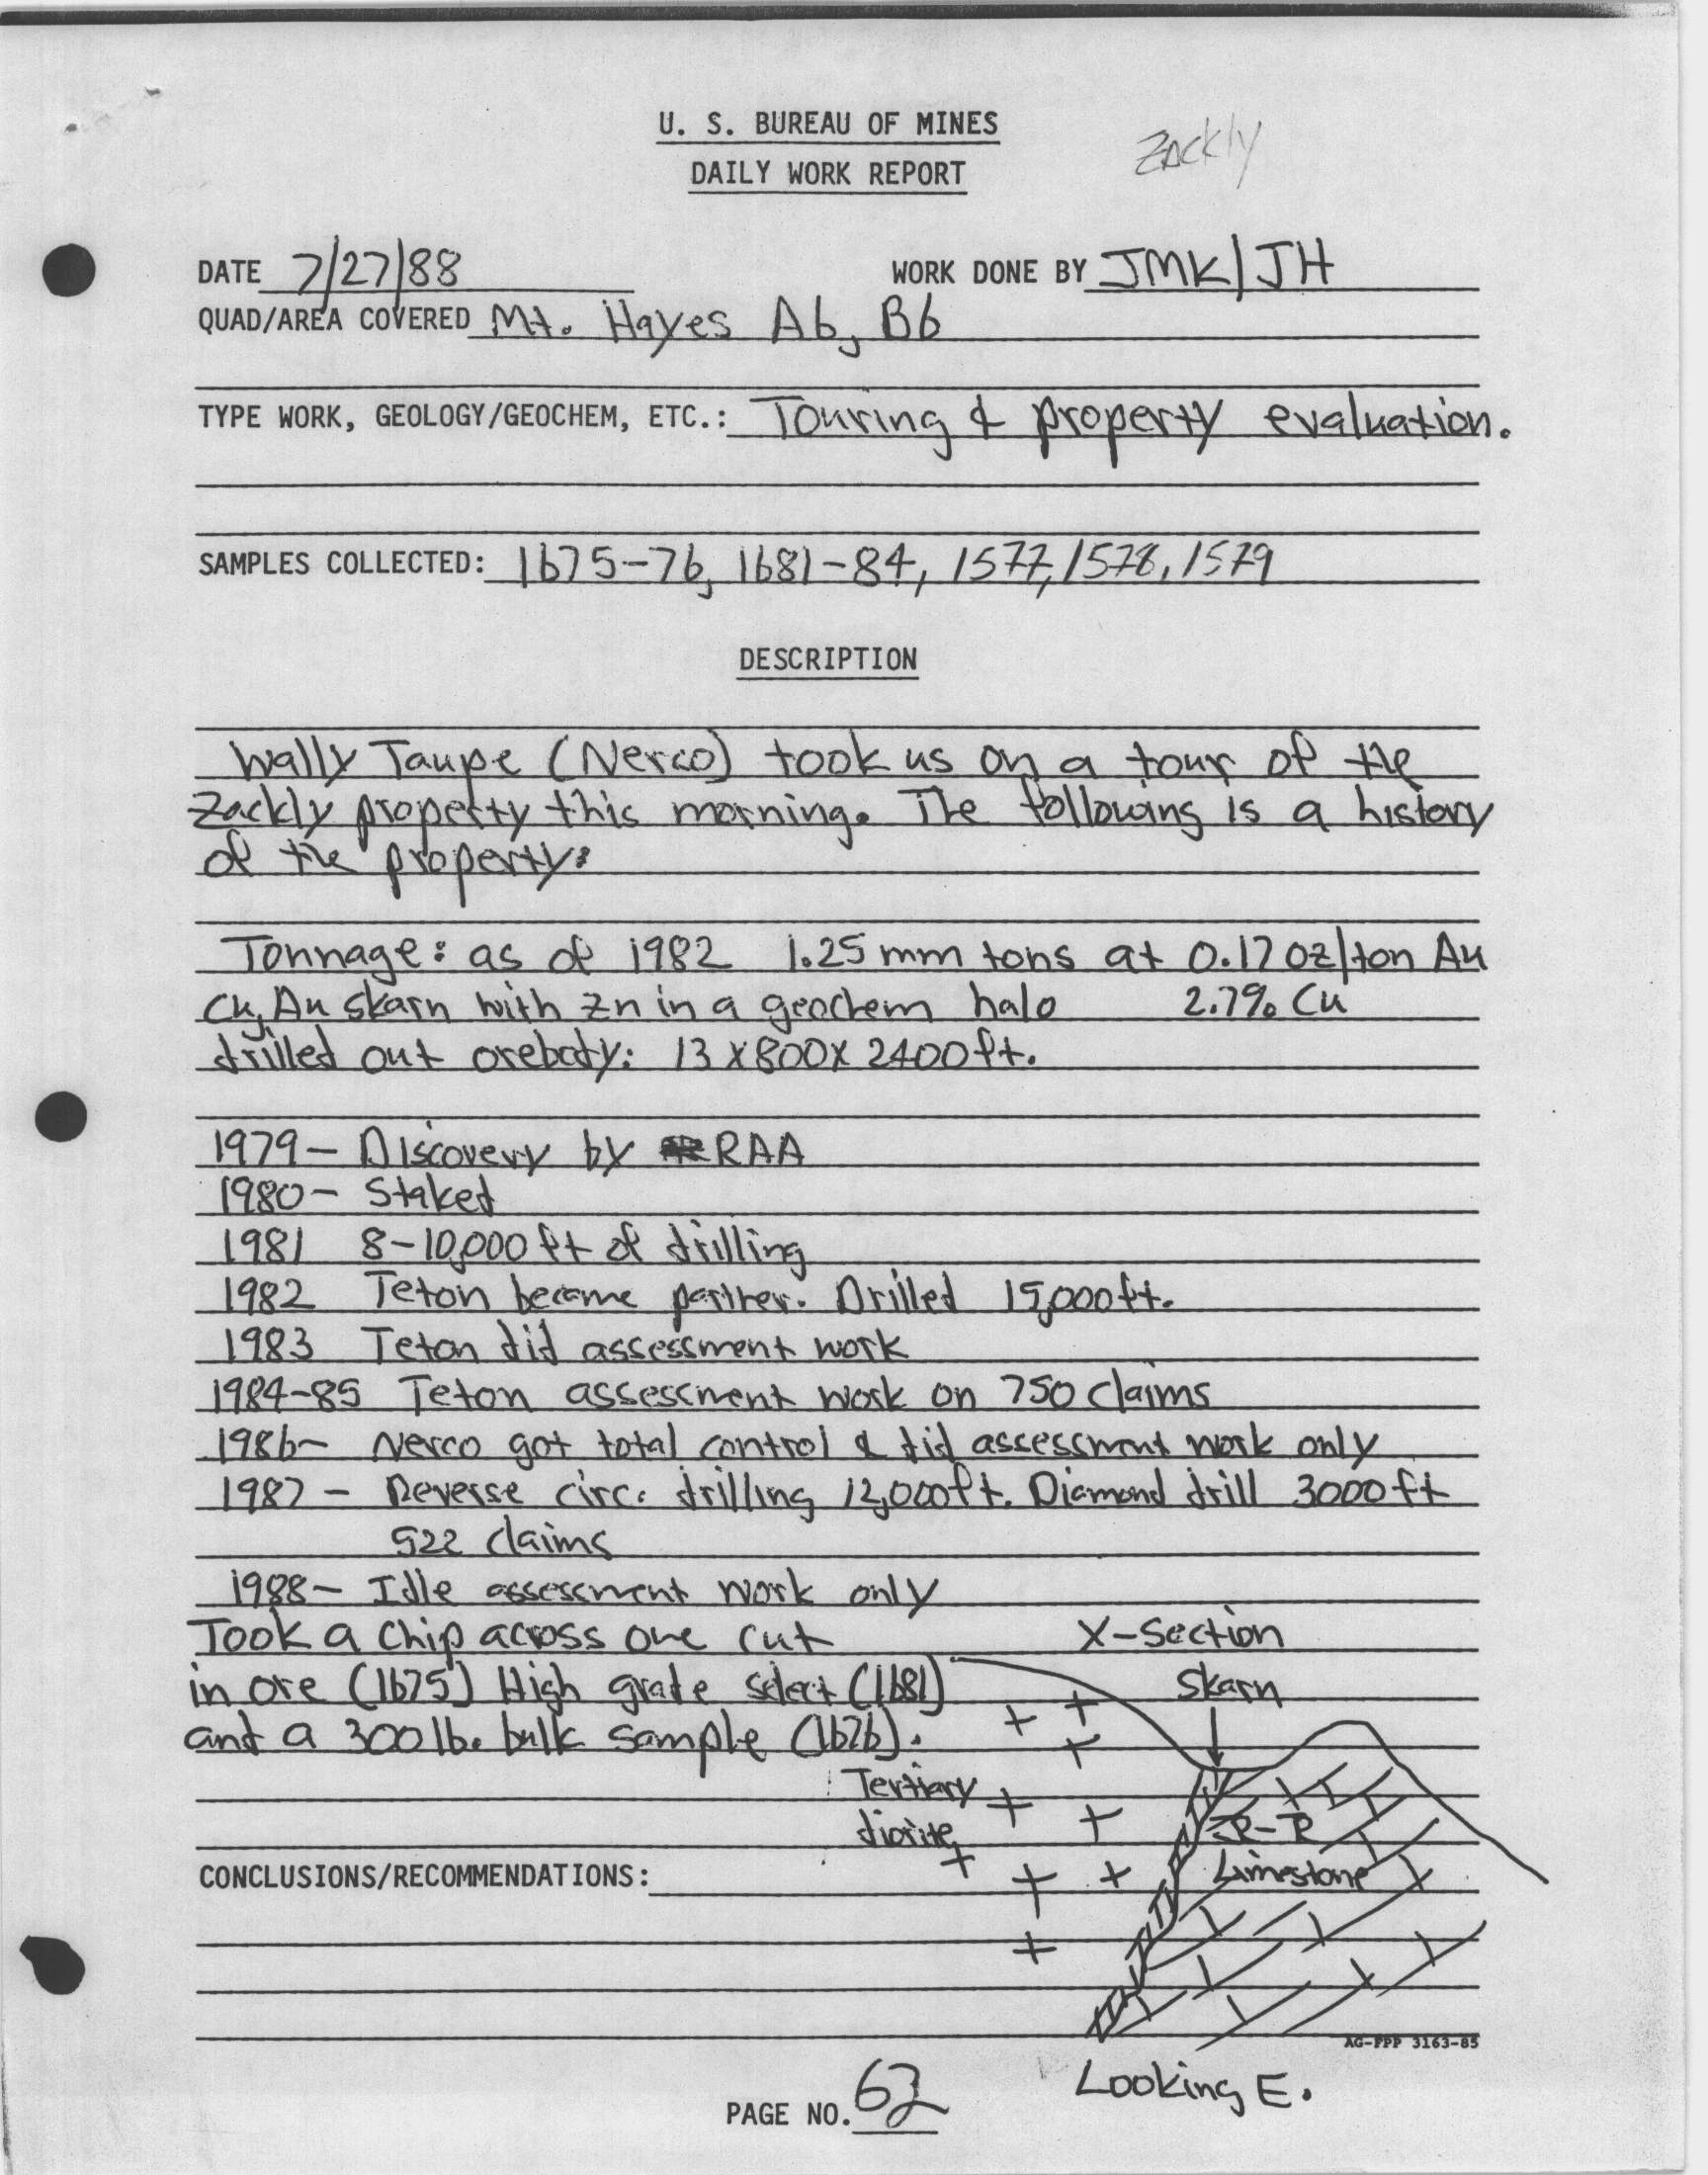 U. S. BUREAU OF MINES
Zackly
DAILY WORK REPORT
DATE 7/27/88 WORK DONE BY JMK/JH
QUAD/AREA COVERED Mt. Hayes A6, B6
TYPE WORK, GEOLOGY/GEOCHEM, ETC.: Touring & property evaluation.
SAMPLES COLLECTED: 1675-76, 1681-84, 1577, 1578, 1579
DESCRIPTION
Wally Taupe (Nerco) took us on a tour of the
Zackly property this morning. The following is a history
of the property:
Tonnage: as of 1982 1.25 mm tons at 0.17 oz/ton Au
Cu, Au skarn with Zn in a geochem halo 2.7% Cu
drilled out orebody: 13 x 800 x 2400 ft.
1979 - Discovery by RAA
1980 - Staked
1981 8-10,000 ft of drilling
1982 Teton became partner. Drilled 15,000 ft.
1983 Teton did assessment work
1984-85 Teton assessment work on 750 claims
1986- Nerco got total control & did assessment work only
1987 - Reverse circ. drilling 12,000 ft. Diamond drill 3000 ft
522 claims
1988- Idle assessment work only
Took a chip across one cut X-Section
in ore (1675) High grade select (1681) Skarn
and a 300 lb. bulk sample (1676).
Tertiary
diorite
Limestone
CONCLUSIONS/RECOMMENDATIONS:
AG-FPP 3163-85
Looking E.
PAGE NO. 62